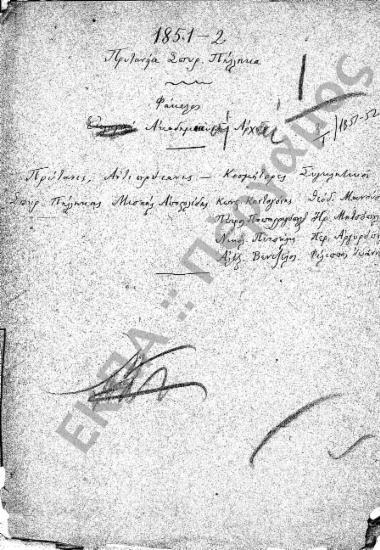 1851-2
Πρυτανεία Σπυρ. Πήλληκα
Φάκελος
Ακαδημαϊκής Αρχής
1851-52
Πρύτανις, Αντιπρύτανις — Κοσμήτορες Συγκλητικοί
Σπυρ. Πήλληκας Μισαήλ Αποστολίδης Κωνσ. Κοντογόνης Θεόδ. Μανούσης
Πέτρος Παπαρρηγόπουλος Ηρ. Μητσόπουλος
Νικολ. Πετσάλης Περ. Αργυρόπουλος
Αλέξ. Βενιζέλος Φίλιππος Ιωάννου
ΕΚΠΑ :: Πέργαμος